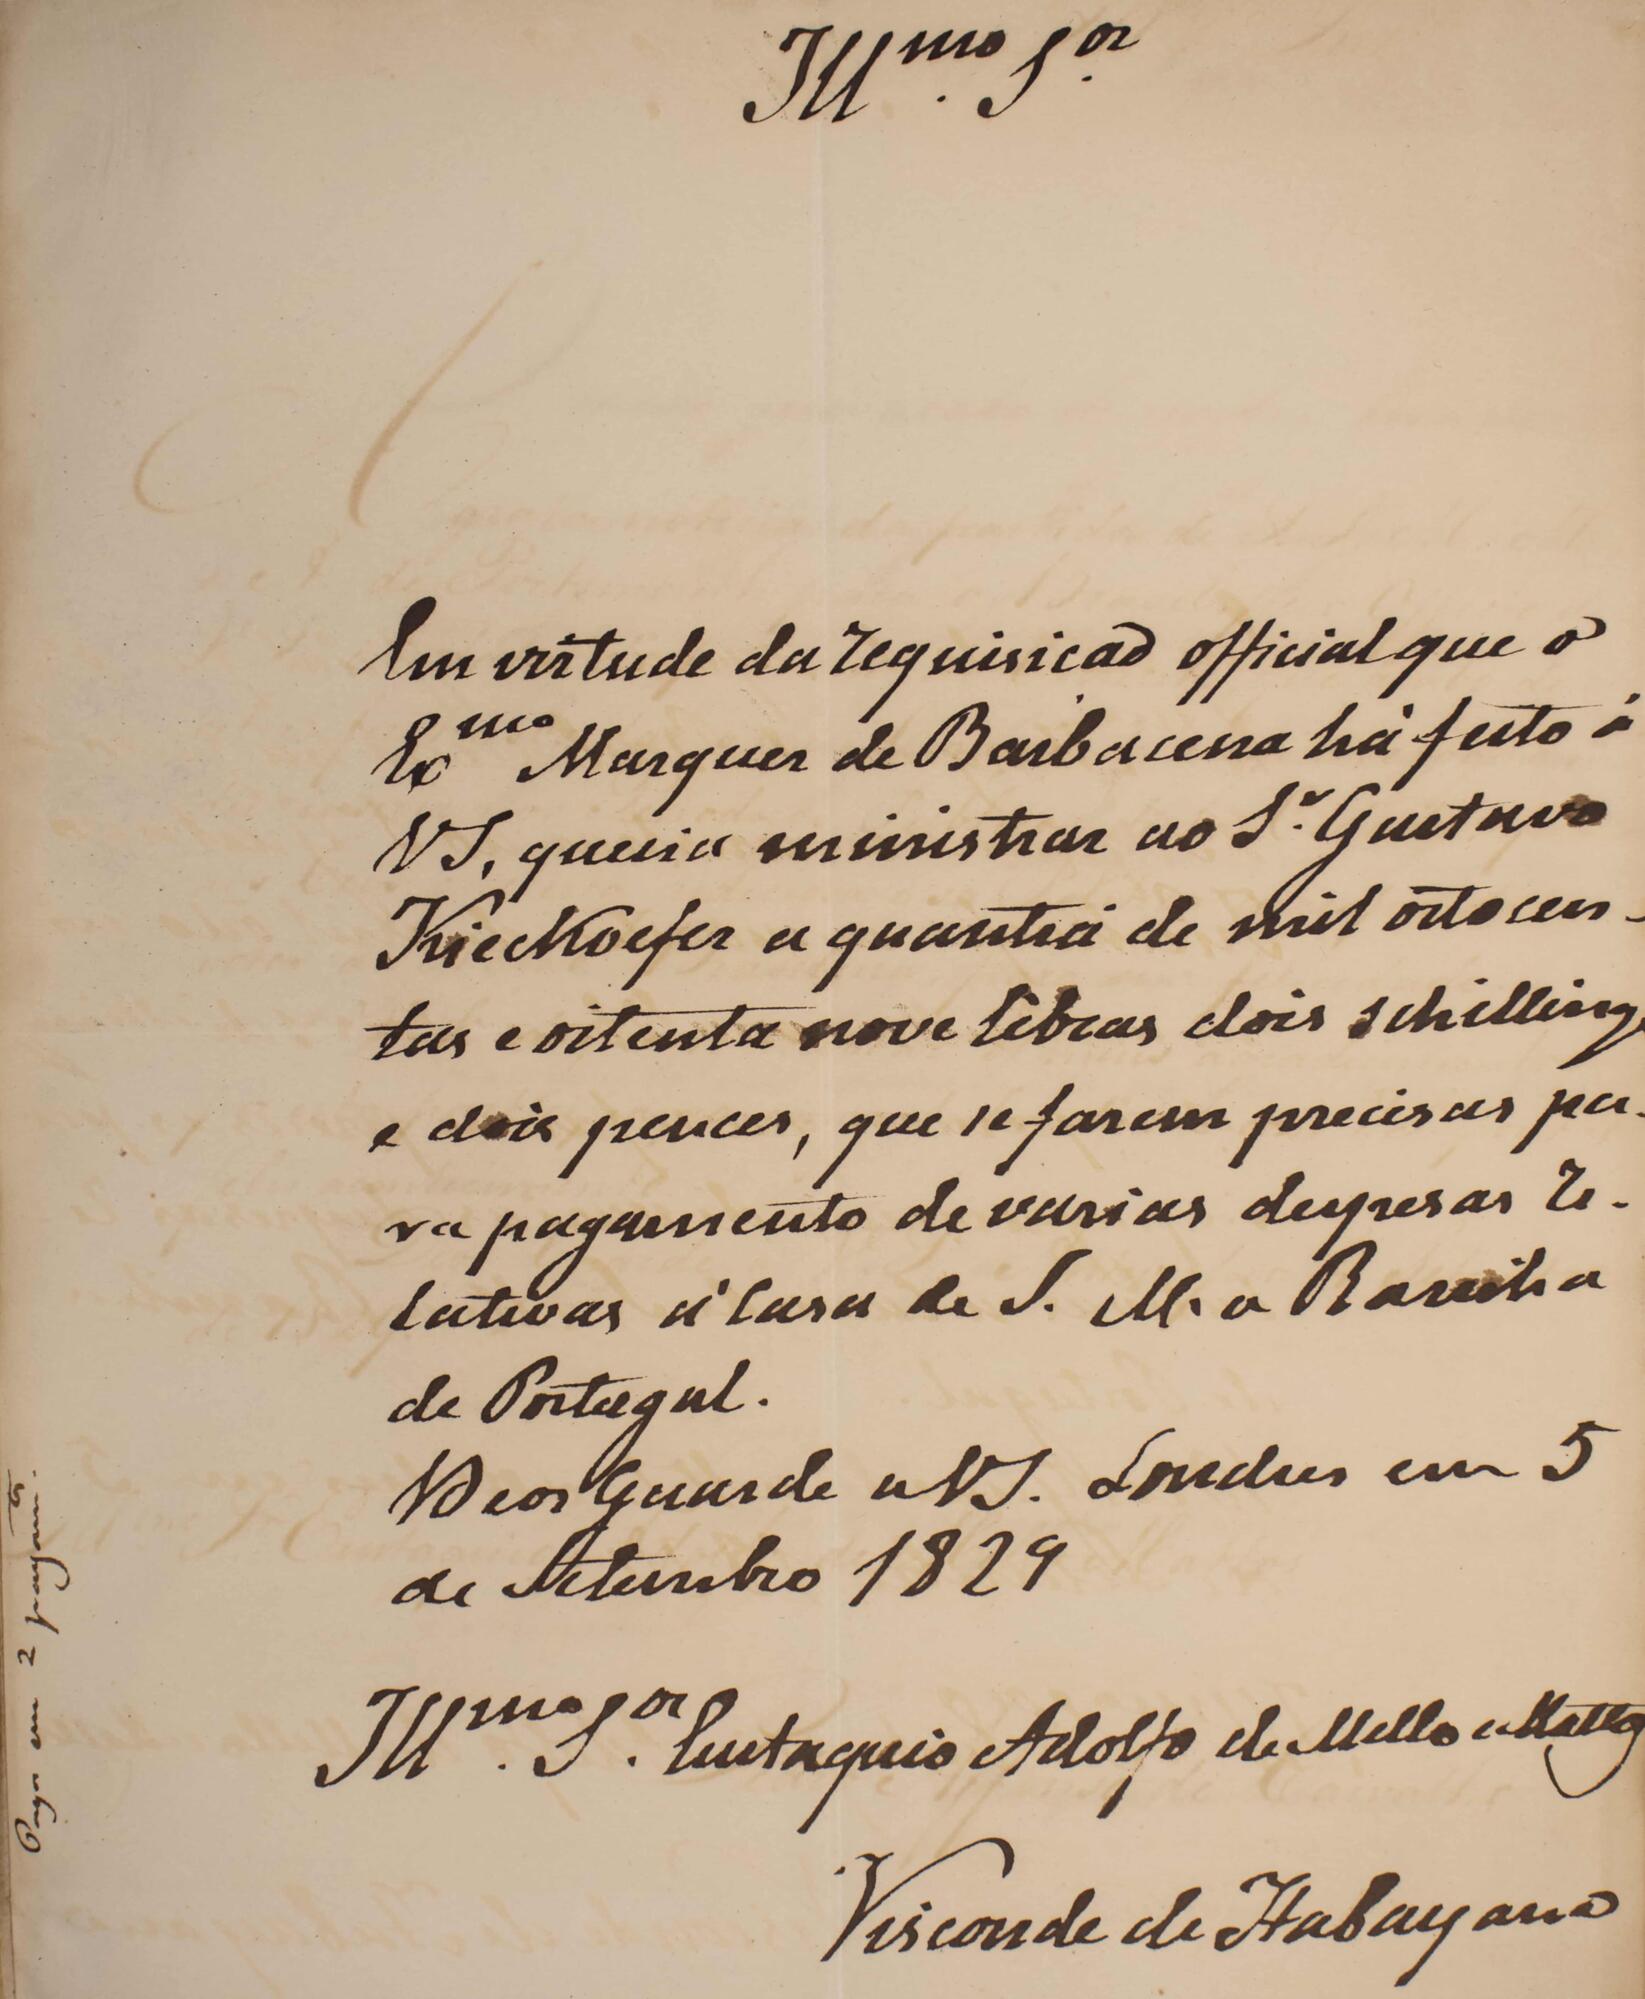 Illmo. Sor.
Em virtude da requisicaõ official que o
Exmo Marquez de Barbacena há feito á
VS, queira ministrar ao Sr. Gustavo
Kieckoefer a quantia de mil oitocen-
tas e oitenta nove libras dois schillings
e dois pences, que se fazem precisas pa-
ra pagamento de varias despesas re-
lativas á Casa de S. M. a Rainha
de Portugal.
Deos Guarde a VS. Londres em 5
de Setembro 1829
Illmo. Sor. Eustaquio Adolfo de Mello e Mattos
Visconde de Itabayana
Pago em 2 pagamtos.